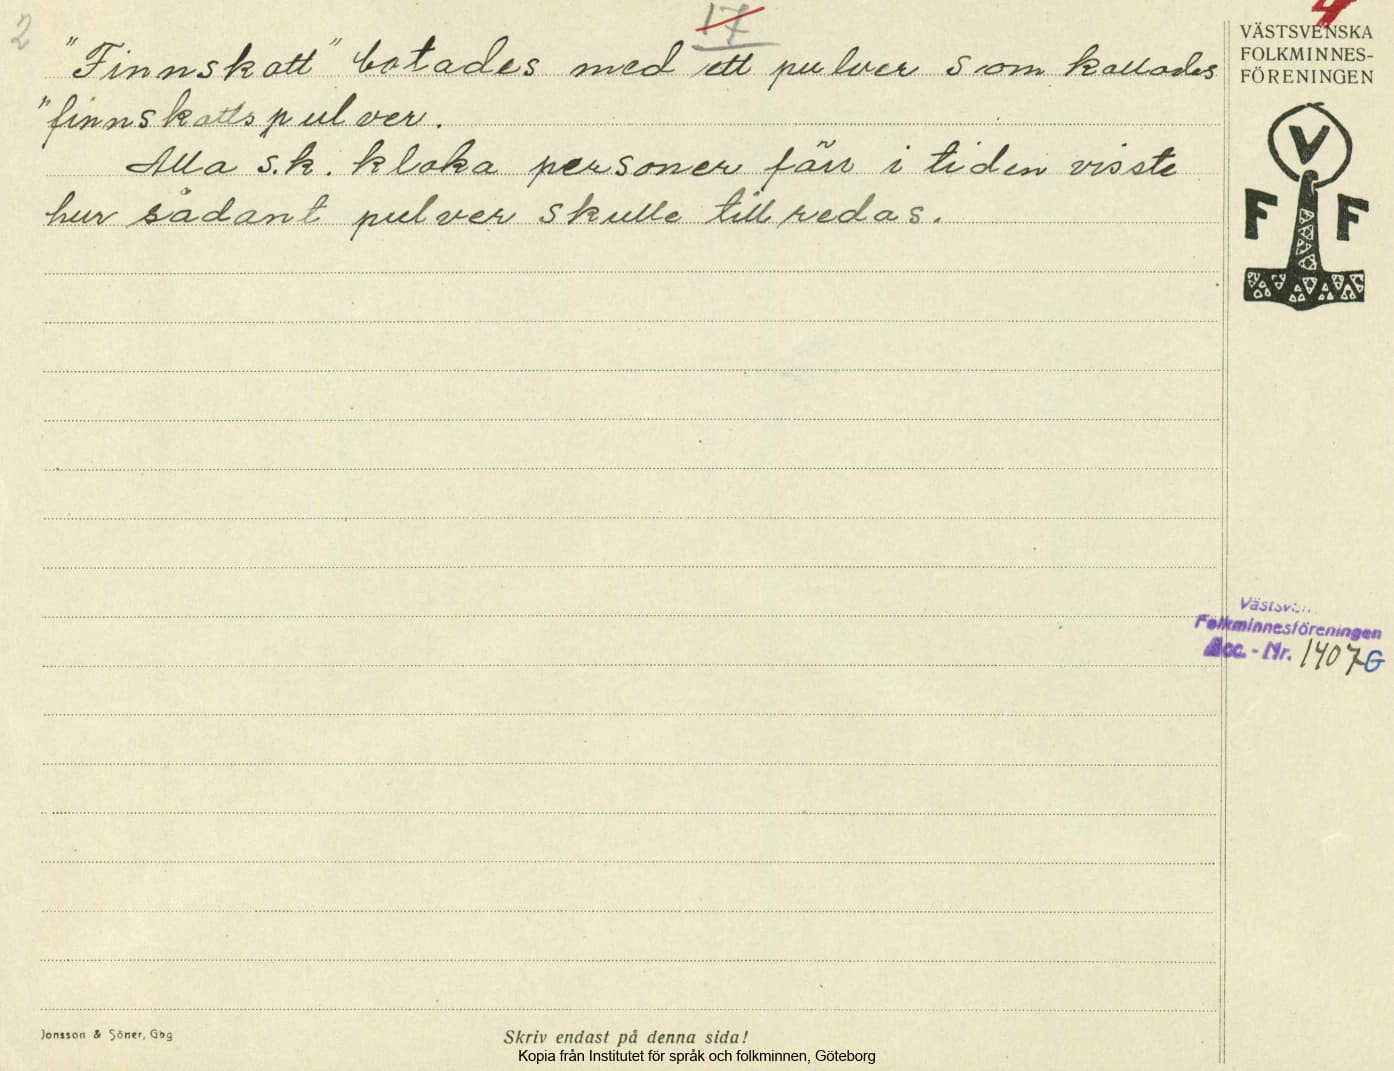 2
17
4
"Finnskott" botades med ett pulver som kallades
"finnskottspulver.
Alla s.k. kloka personer förr i tiden visste
hur sådant pulver skulle tillredas.
VÄSTSVENSKA
FOLKMINNES-
FÖRENINGEN
V
F F
Folkminnesföreningen
Acc. - Nr. 1407 G
Jonsson & Söner, Gbg
Skriv endast på denna sida!
Kopia från Institutet för språk och folkminnen, Göteborg